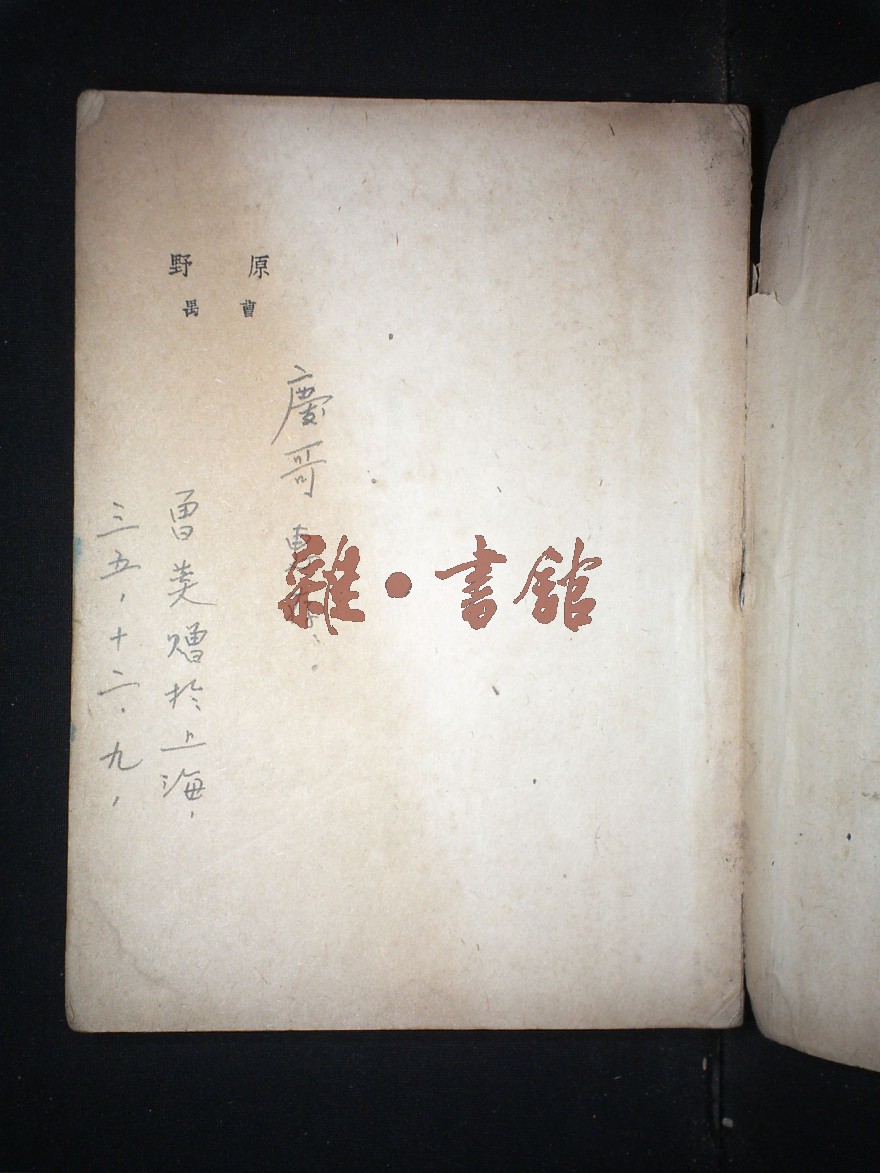 原野
曹禺
慶哥
贈於上海,
三五,十二.九,
雜·書館